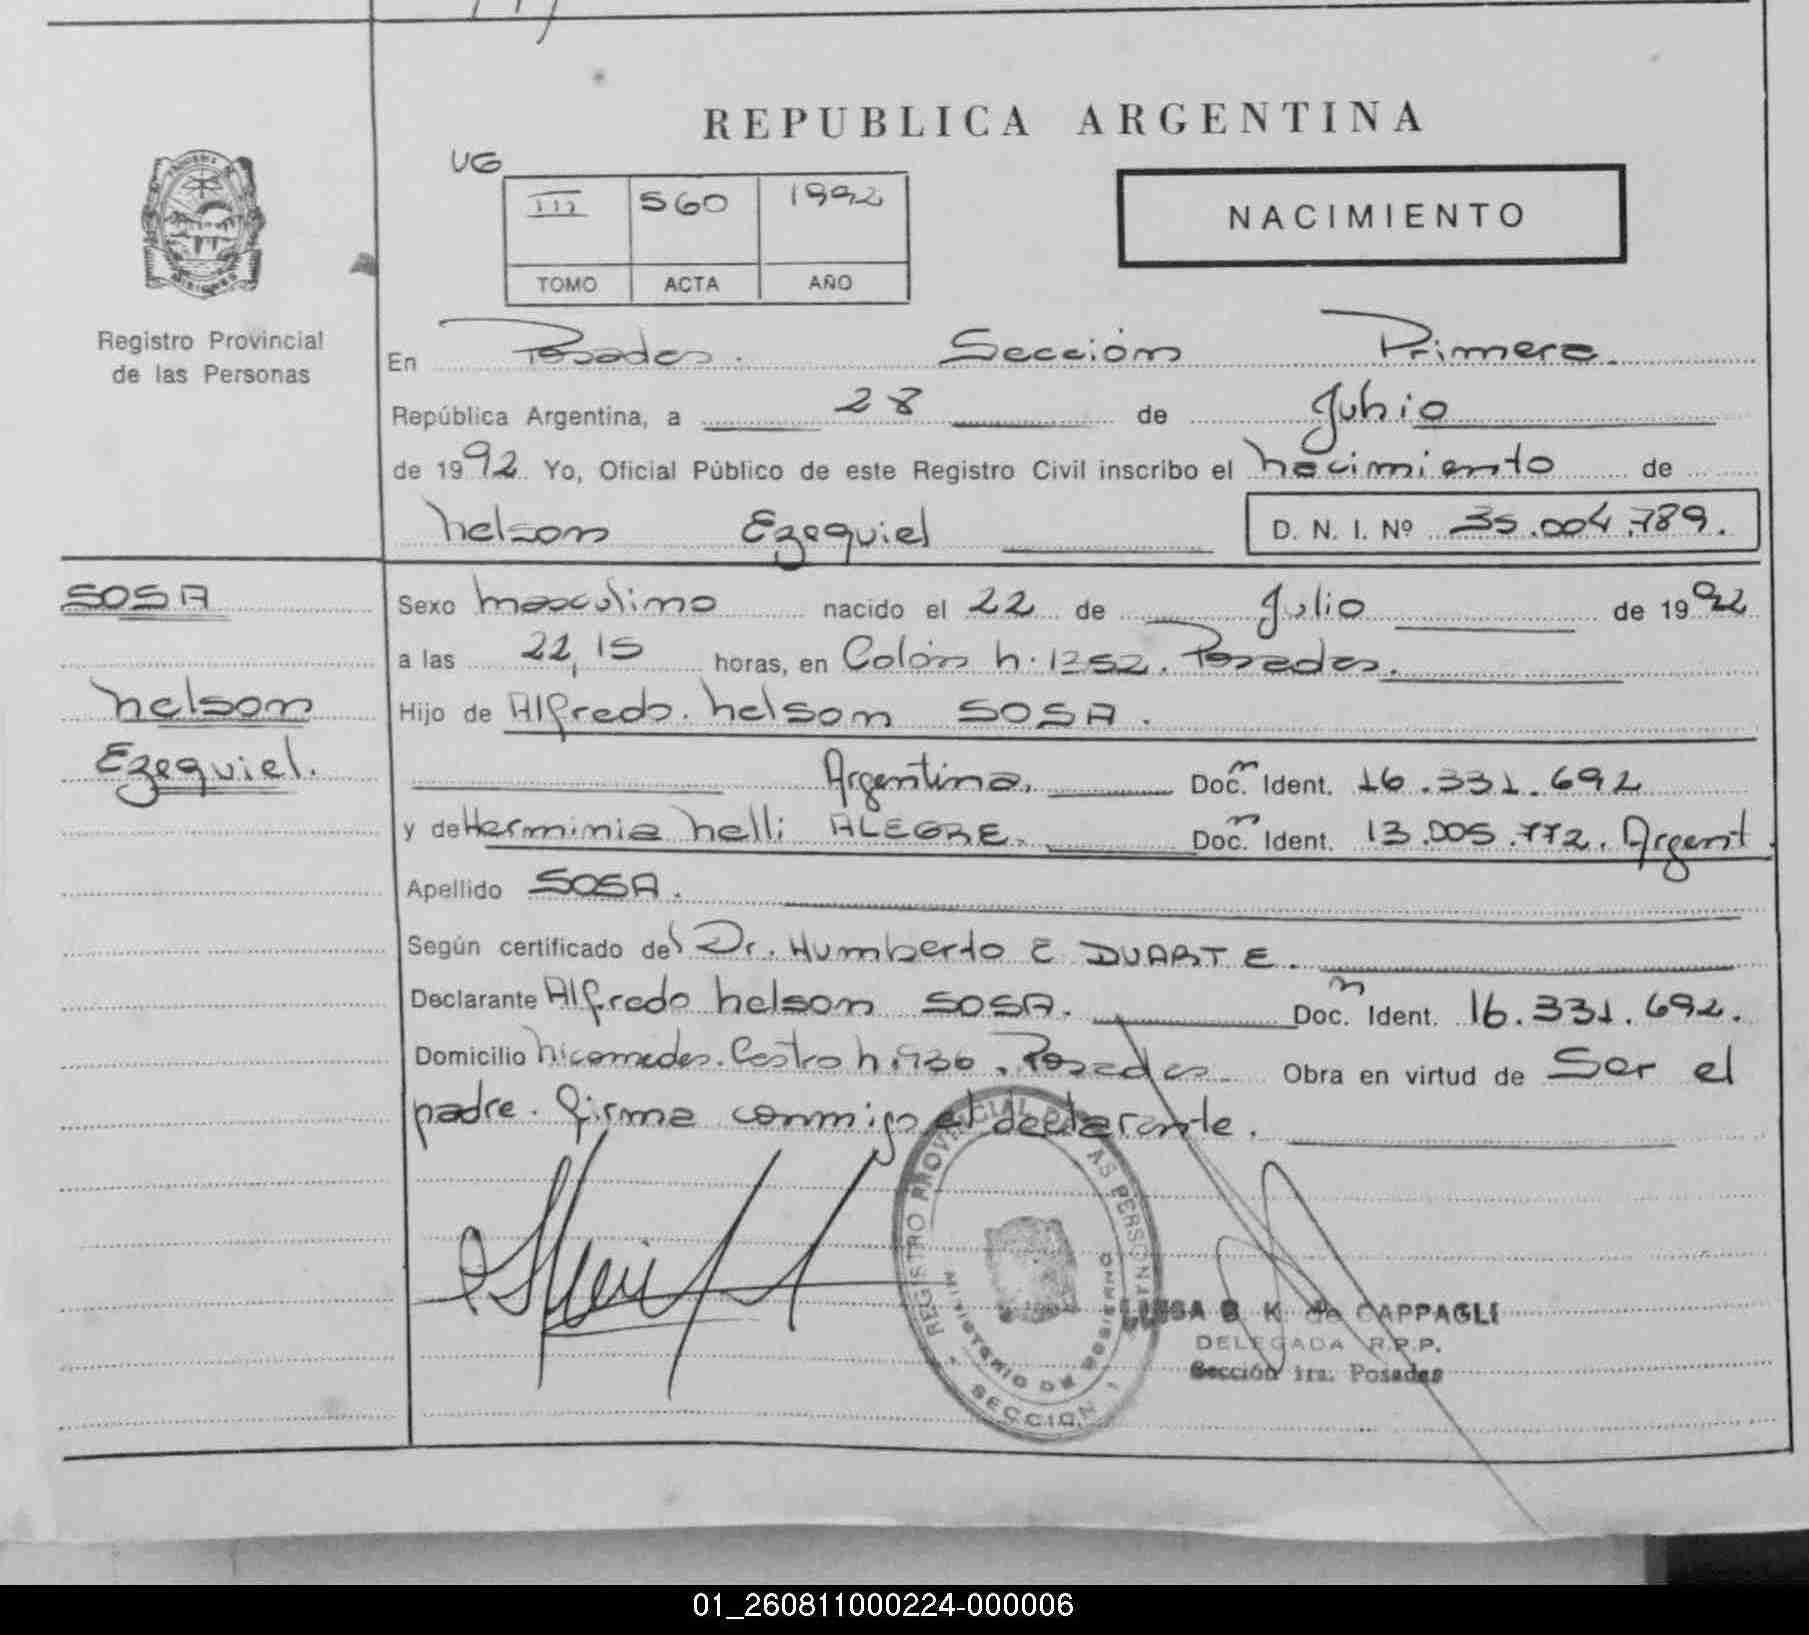 REPUBLICA ARGENTINA
UG
III 560 1992
TOMO ACTA AÑO
NACIMIENTO
Registro Provincial
de las Personas
En Posadas. Sección Primera.
República Argentina, a 28 de Julio
de 1992. Yo, Oficial Público de este Registro Civil inscribo el nacimiento de
Nelson Ezequiel D. N. I. Nº 35.004.789.
SOSA
Nelson
Ezequiel.
Sexo masculino nacido el 22 de Julio de 1992
a las 22,15 horas, en Colón N. 1252. Posadas.
Hijo de Alfredo. Nelson SOSA.
Argentina. Doc. Ident. 16.331.692
y de Herminia Nelli ALEGRE. Doc. Ident. 13.005.772. Argent.
Apellido SOSA.
Según certificado del Dr. Humberto E DUARTE.
Declarante Alfredo Nelson SOSA. Doc. Ident. 16.331.692.
Domicilio Nicomedes. Castro N. 936. Posadas. Obra en virtud de Ser el
padre. Firma conmigo el declarante.
REGISTRO PROVINCIAL DE LAS PERSONAS
MINISTERIO DE GOBIERNO
SECCION 1
LUISA B. K. de CAPPAGLI
DELEGADA R.P.P.
Sección 1ra. Posadas
01_260811000224-000006